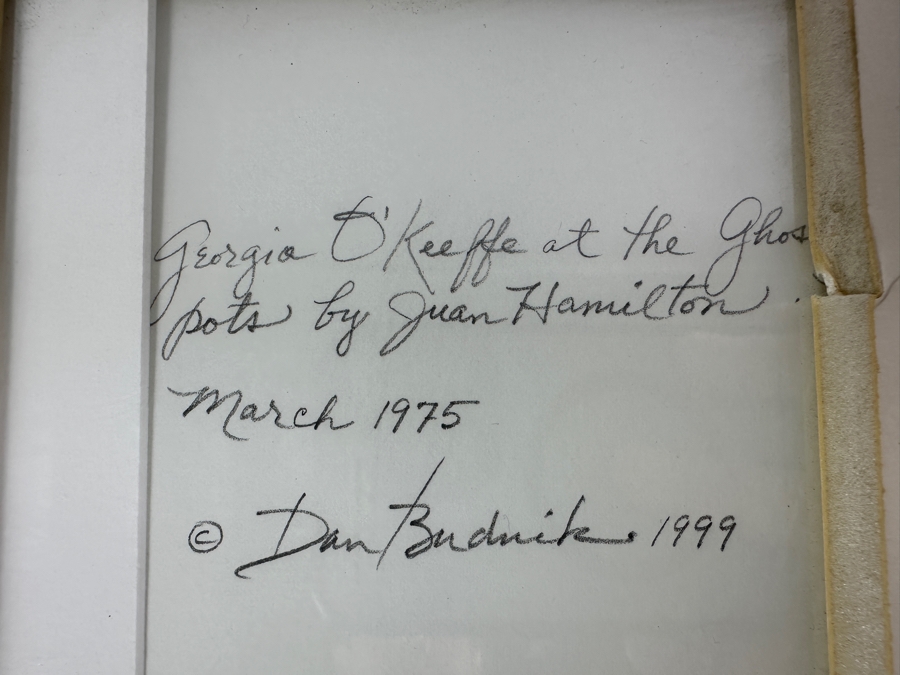 Georgia O'Keeffe at the Ghos
pots by Juan Hamilton.
March 1975
© Dan Budnik 1999